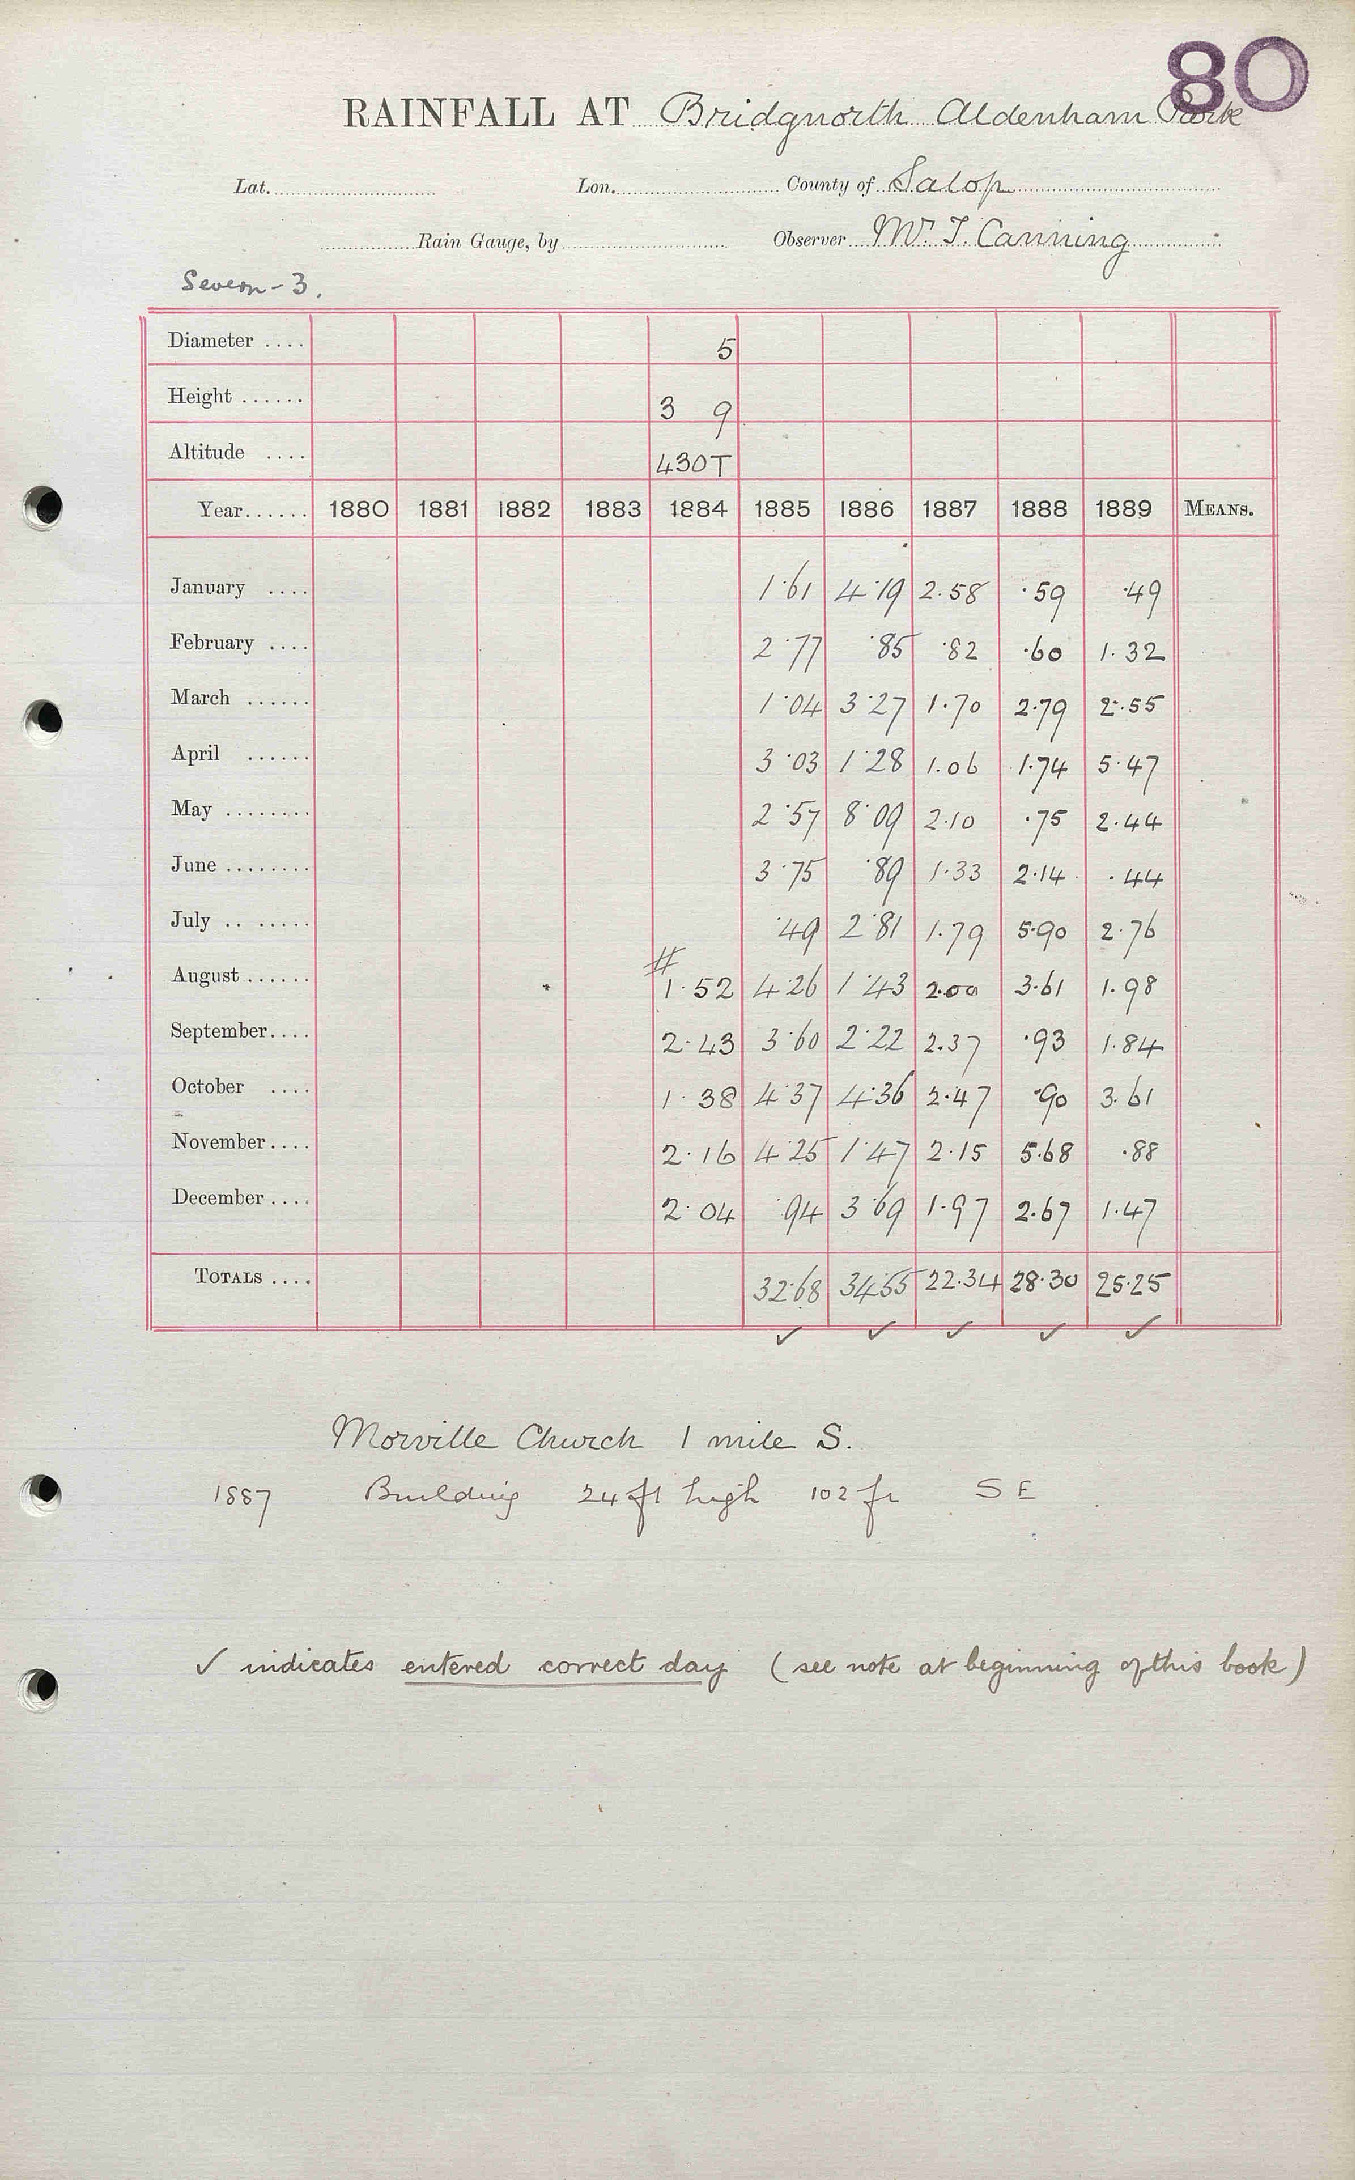 80
RAINFALL AT Bridgnorth Aldenham Park
Lat. Lon. County of Salop
Rain Gauge, by Observer Mr. T. Canning
Severn - 3.
Diameter .... 5
Height ...... 3 9
Altitude .... 430T
Year...... 1880 1881 1882 1883 1884 1885 1886 1887 1888 1889 MEANS.
January .... 1.61 4.19 2.58 .59 .49
February .... 2.77 .85 .82 .60 1.32
March ...... 1.04 3.27 1.70 2.79 2.55
April ...... 3.03 1.28 1.06 1.74 5.47
May ........ 2.57 8.09 2.10 .75 2.44
June ........ 3.75 .89 1.33 2.14 .44
July .. ..... .49 2.81 1.79 5.90 2.76
#
August ...... 1.52 4.26 1.43 2.00 3.61 1.98
September.... 2.43 3.60 2.22 2.37 .93 1.84
October .... 1.38 4.37 4.36 2.47 .90 3.61
November.... 2.16 4.25 1.47 2.15 5.68 .88
December .... 2.04 .94 3.69 1.97 2.67 1.47
TOTALS .... 32.68 34.55 22.34 28.30 25.25
✓ ✓ ✓ ✓ ✓
Morville Church 1 mile S.
1887 Building 24 ft high 102 ft SE
✓ indicates entered correct day (see note at beginning of this book)